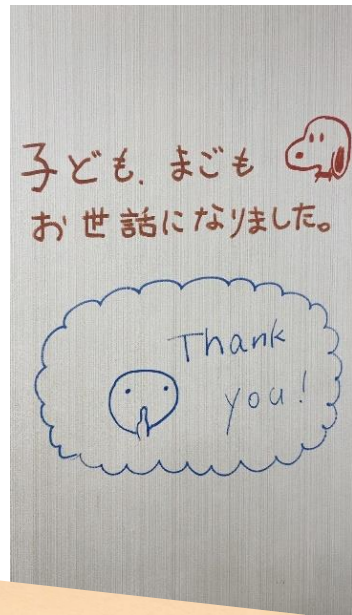 子ども、まごも
お世話になりました。
Thank
you!